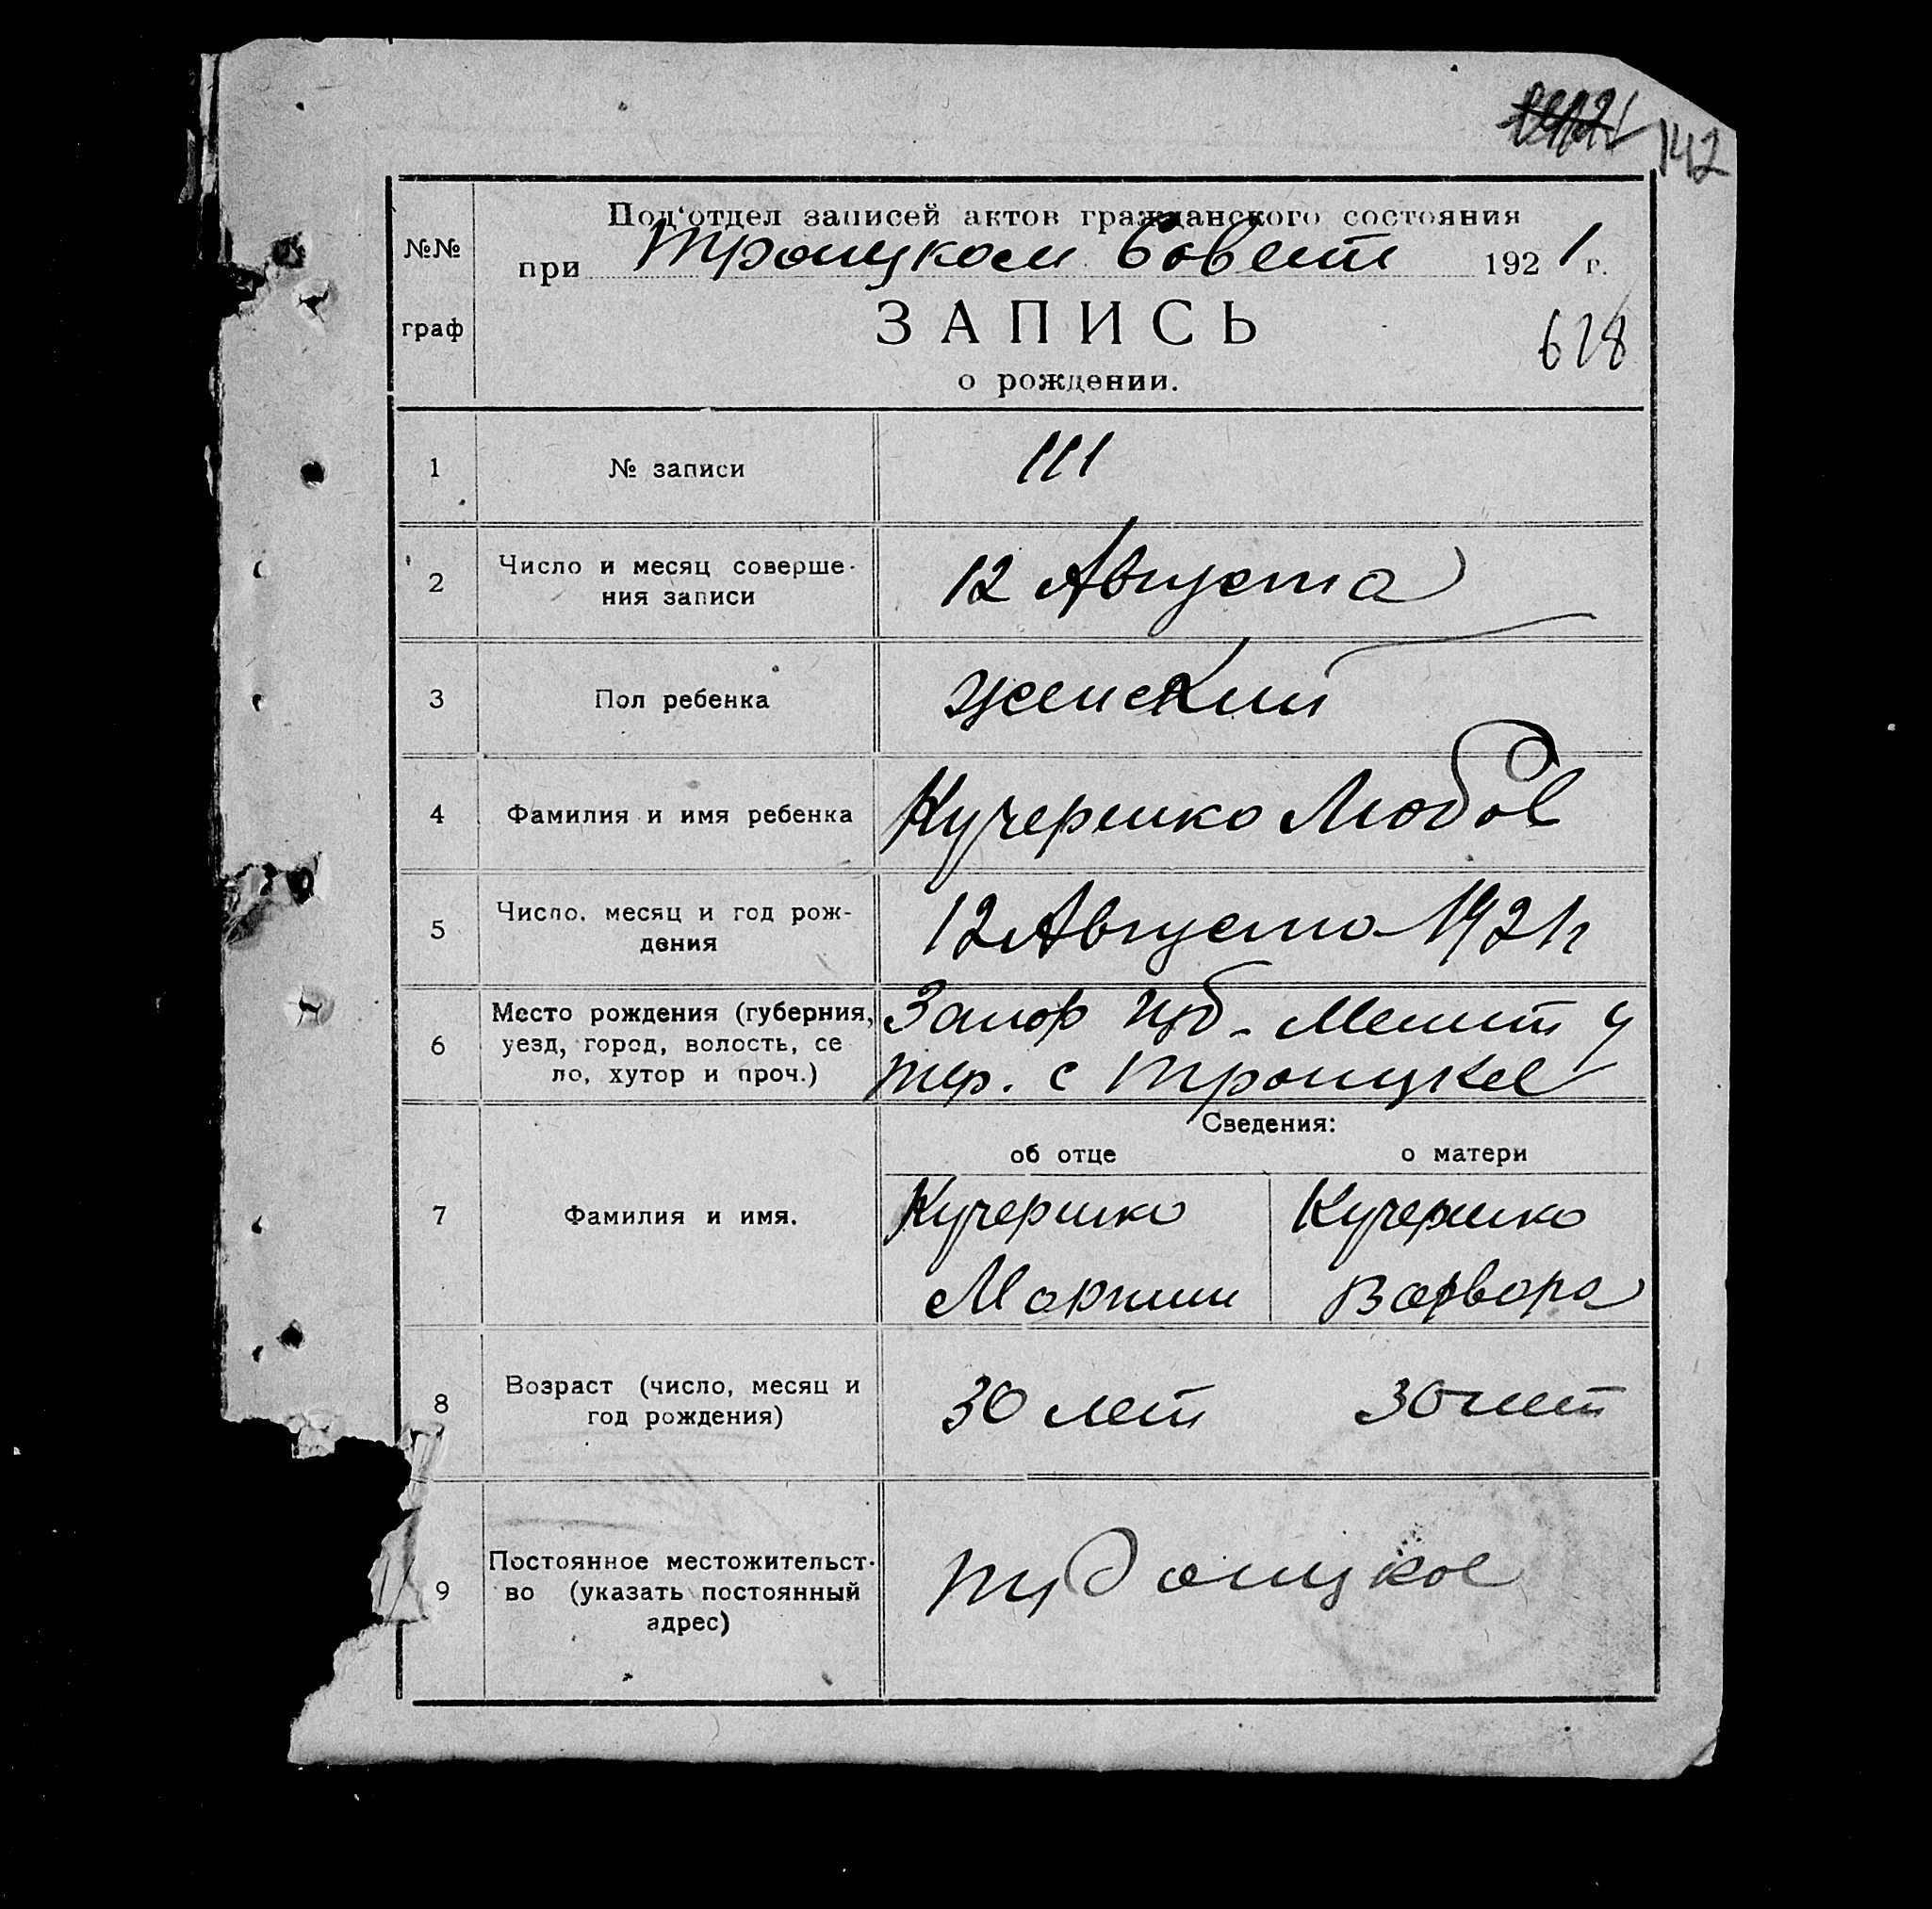 142
Под‘отдел записей актов гражданского состояния
№№
при Троицком Совети 1921 г.
граф
ЗАПИСЬ
628
о рождении.
1 № записи 111
2 Число и месяц соверше-
ния записи
12 Августа
3 Пол ребенка женский
4 Фамилия и имя ребенка Кучеренко Любов
5 Число, месяц и год рож-
дения
12 Августа 1921 г
6 Место рождения (губерния,
уезд, город, волость, се
ло, хутор и проч.)
Запор губ - Мелит у
тер. с Троицкое
Сведения:
об отце о матери
7 Фамилия и имя.
Кучеренко Кучеренко
Мартин Варвара
8 Возраст (число, месяц и
год рождения)
30 лет 30 лет
9 Постоянное местожительст-
во (указать постоянный
адрес)
Троицкое